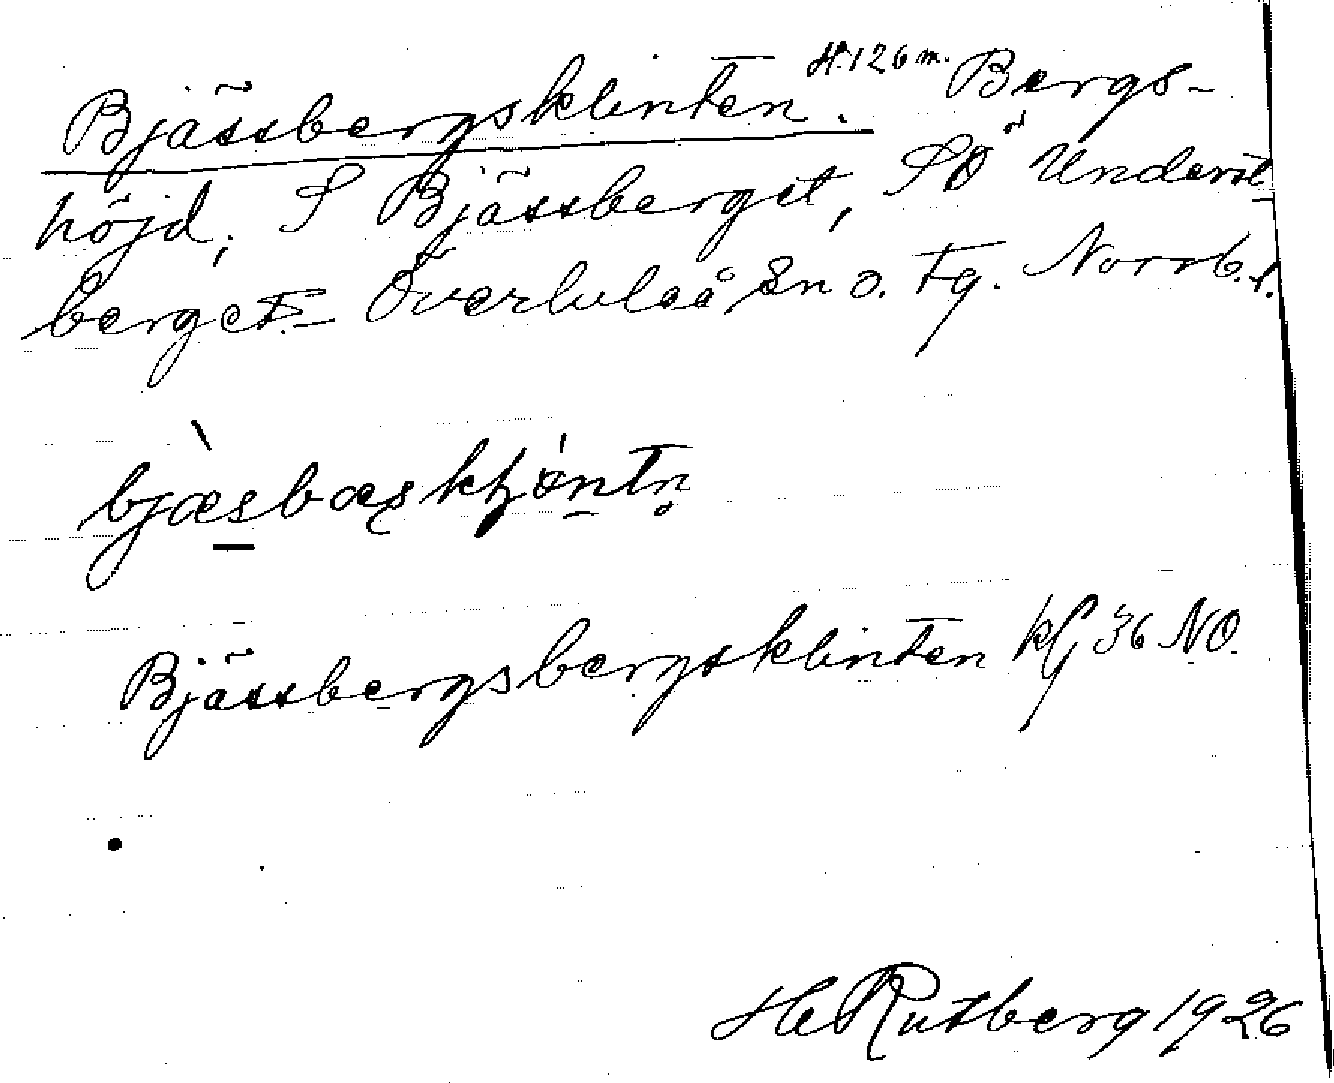 Bjässbergsklinten. H.126 m. Bergs-
höjd, S Bjässberget, SO Underst-
berget. – Överluleå sn o. tg. Norrb. l.
bjæsbæs kḷøntn̥
Bjässbergsbergsklinten kG 36 NO.
H Rutberg 1926